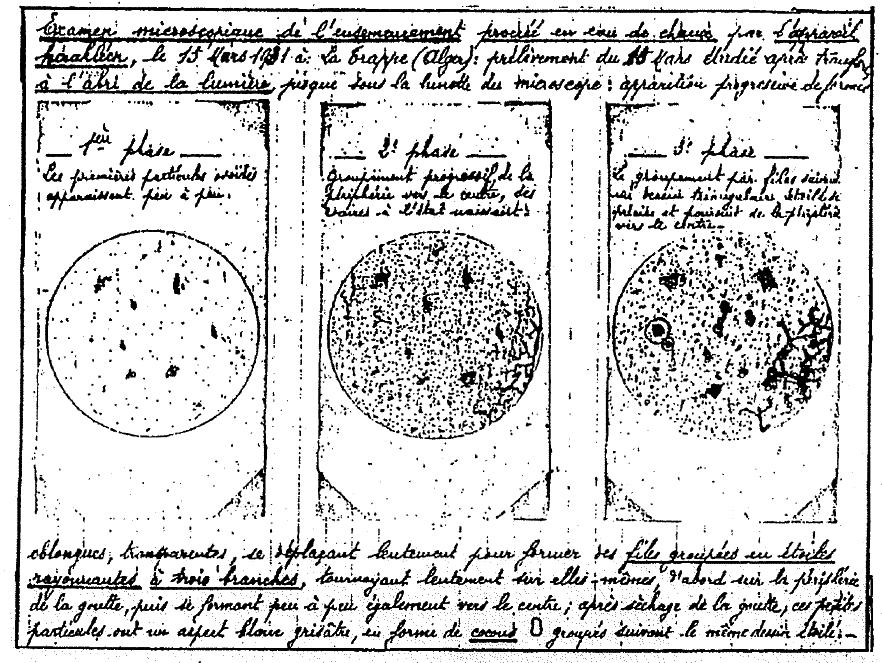 Examen microscopique de l'ensemencement procédé en eau de chaux par l'appareil
le 15 Mars 1931 à La Trappe (Alger): prélèvement du 15 Mars étudié après
à l'abri de la lumière jusque sous la lunette du microscope: apparition progressive de
1ère phase
Les premières particules ovoïdes
apparaissent peu à peu.
2e phase
Groupement progressif de la
périphérie vers le centre, des
à l'état naissant.
3e phase
Le groupement par files suivant
un dessin triangulaire étoilé se
précise et poursuit de la périphérie
vers le centre.
oblongues, transparentes, se déplaçant lentement pour former des files groupées en étoiles
rayonnantes à trois branches, tournoyant lentement sur elles-mêmes, d'abord sur la périphérie
de la goutte, puis se formant peu à peu également vers le centre; après séchage de la goutte, ces petites
particules ont un aspect blanc grisâtre, en forme de cocons 0 groupés suivant le même dessin étoilé.-